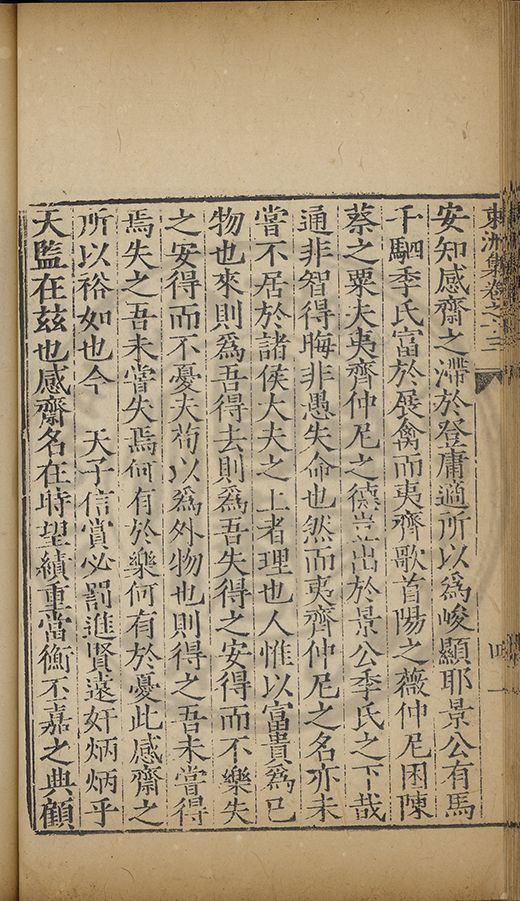 東洲集卷之十三
四
安知感齋之滯於登庸適所以爲峻顯耶景公有馬
千駟季氏富於展禽而夷齊歌首陽之薇仲尼困陳
蔡之粟夫夷齊仲尼之德豈出於景公季氏之下哉
通非智得晦非愚失命也然而夷齊仲尼之名亦未
嘗不居於諸侯大夫之上者理也人惟以富貴爲已
物也來則爲吾得去則爲吾失得之安得而不樂失
之安得而不憂夫苟以爲外物也則得之吾未嘗得
焉失之吾未嘗失焉何有於樂何有於憂此感齋之
所以裕如也今 天子信賞必罰進賢遠奸炳炳乎
天監在兹也感齋名在時望績重當衡不嘉之典顧